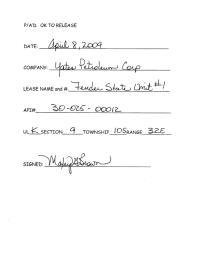 P/AID. OK TO RELEASE
DATE: April 8, 2009
COMPANY: Yates Petroleum Corp
LEASE NAME and #: Fender State Unit #1
API#: 30-025-00012
UL K SECTION 9 TOWNSHIP 10S RANGE 32E
SIGNED: